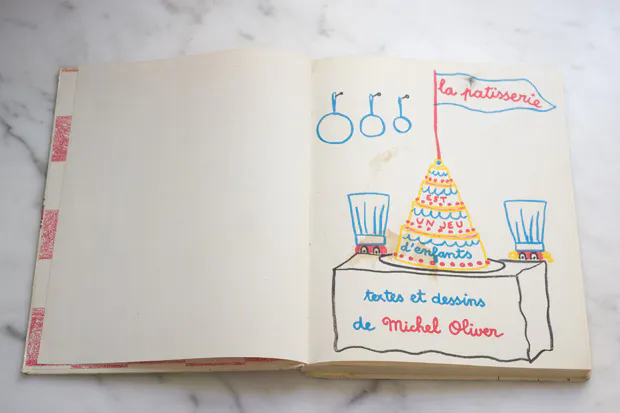 la patisserie
EST
UN JEU
d'enfants
textes et dessins
de Michel Oliver